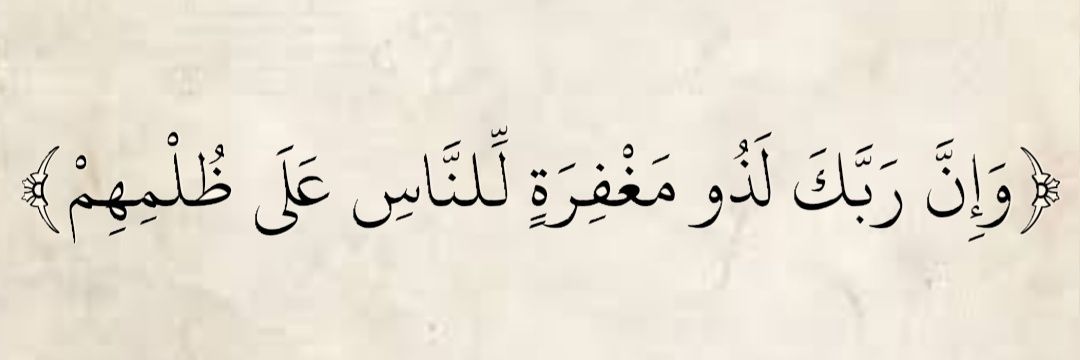 ﴿وَإِنَّ رَبَّكَ لَذُو مَغْفِرَةٍ لِّلنَّاسِ عَلَى ظُلْمِهِمْ﴾